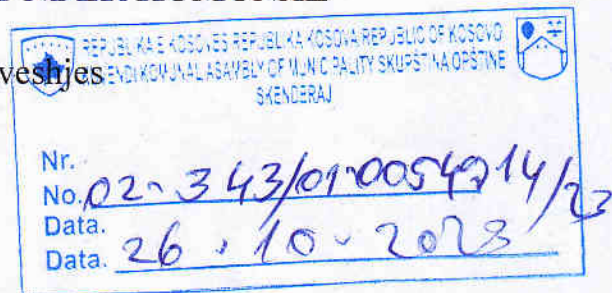 veshjes
REPUBLIKA E KOSOVËS REPUBLIKA KOSOVA REPUBLIC OF KOSOVO
KUVENDI KOMUNAL ASAMBLY OF MUNICIPALITY SKUPŠTINA OPŠTINE
SKENDERAJ
Nr.
No. 02-343/01-0054914/23
Data.
Data. 26.10.2023